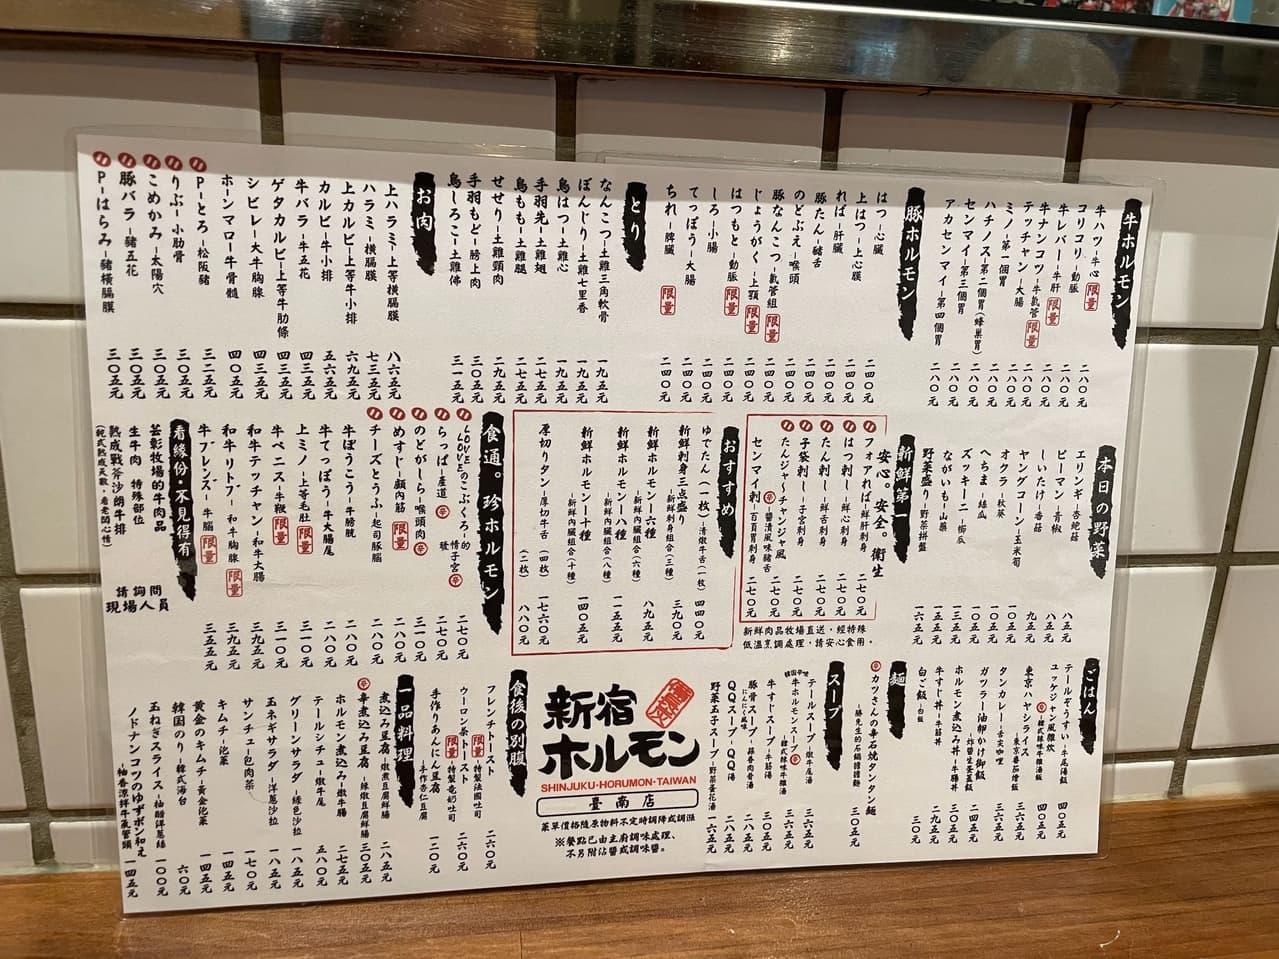 牛ホルモン
牛ハツ－牛心 限量 二八〇元
コリコリ－動脈 二八〇元
牛レバー－牛肝 限量 二八〇元
牛ナンコツ－牛氣管 二八〇元
テッチャン－大腸 限量 二八〇元
ミノ－第一個胃 二八〇元
ハチノス－第二個胃(蜂巢胃) 二八〇元
センマイ－第三個胃 二八〇元
アカセンマイ－第四個胃 二八〇元
豚ホルモン
はつ－心臟 二四〇元
上はつ－上心臟 二四〇元
ればー肝臟 二四〇元
豚たん－豬舌 二四〇元
のどぶえ－喉頭 二四〇元
豚なんこつ－氣管組 限量 二四〇元
じょうがく－上顎 限量 二四〇元
はつもと－動脈 限量 二四〇元
しろ－小腸 二四〇元
てっぽう－大腸 二四〇元
ちれ－脾臟 限量 二四〇元
とり
なんこつ－土雞三角軟骨 一九五元
ぼんじり－土雞七里香 一九五元
鳥はつ－土雞心 一九五元
手羽先－土雞翅 二七五元
鳥もも－土雞腿 二七五元
せせり－土雞頸肉 二九五元
手羽もど－膀上肉 三〇五元
鳥しろこ－土雞佛 三一五元
お肉
上ハラミ－上等橫膈膜 八六五元
ハラミ－橫膈膜 七三五元
上カルビ－上等牛小排 六九五元
カルビ－牛小排 五六五元
牛バラ－牛五花 四三五元
ゲタカルビ－上等牛肋條 四三五元
シビレ－大牛胸腺 四三五元
ホーンマロー牛骨髓 四〇五元
Pーとろ－松阪豬 三二五元
りぶ－小肋骨 三〇五元
こめかみ－太陽穴 三〇五元
豚バラ－豬五花 三〇五元
Pーはらみ－豬橫膈膜 三〇五元
本日の野菜
エリンギ－杏鮑菇 八五元
ピーマン－青椒 八五元
しいたけ－香菇 九五元
ヤングコーン－玉米筍 一〇五元
オクラ－秋葵 一〇五元
へちま－絲瓜
ズッキーニ－櫛瓜
ながいも－山藥
野菜盛り－野菜拼盤 一六五元
新鮮第一
安心。安全。衛生
フォアれば－鮮肝刺身 二七〇元
はつ刺し－鮮心刺身 二七〇元
たん刺し－鮮舌刺身 二七〇元
子袋刺し－子宮刺身 二七〇元
たんジャ～チャンジャ風 辛－醬漬風味豬舌 二七〇元
センマイ刺－百頁胃刺身 二七〇元
新鮮肉品牧場直送・經特殊
低溫烹調處理・請安心食用・
おすすめ
ゆでたん(一枚)－清燉牛舌(一枚) 四四〇元
新鮮刺身三点盛り－新鮮刺身組合(三種) 三九〇元
新鮮ホルモン－六種－新鮮內臟組合(六種) 八九五元
新鮮ホルモン－八種－新鮮內臟組合(八種) 一一五五元
新鮮ホルモン－十種－新鮮內臟組合(十種) 一四〇五元
厚切りタン－厚切牛舌(四枚) 一七六〇元
(二枚) 八八〇元
食通。珍ホルモン
LOVEのこぶくろ－的情子宮 辛 二七〇元
らっぱ－產道 辛 二七〇元
のどがしら－喉頭肉 辛 三一〇元
めすじ－顱內筋 限量 二八〇元
チーズとうふ－起司豚腦 二八〇元
牛ぼうこう－牛膀胱 二八〇元
牛てっぽう－牛大腸尾 二八〇元
上ミノ－上等毛肚 限量 三一〇元
牛ペニス－牛鞭 限量 三一〇元
和牛テッチャン－和牛大腸 三九五元
和牛リードブ－和牛胸腺 限量 三九五元
牛ブレンズー－牛腦 限量 三五五元
看緣份・不見得有
芸彰牧場的牛肉品
生牛肉 特殊部位
熟成戰斧沙朗牛排
(乾式熟成天數，看老闆心情)
請詢問
現場人員
ごはん
テールぞうすい－牛尾湯飯 四〇五元
ユッケジャン風雑炊－韓式辣味牛雜湯飯 辛 四〇五元
東京ハヤシライス－東京蕃茄燴飯 三六五元
タンカレー－舌尖咖哩 三六五元
ガツラー油卵かけ御飯
ホルモン煮込み丼－牛腸丼 二九五元
牛すじ丼－牛筋丼 二九五元
白ご飯－白飯 三〇元
麵
辛 カツさんの辛石焼タンタン麺－勝先生的石鍋擔擔麵 三〇五元
スープ
テールスープ－燉牛尾湯 三六五元
韓国辛味牛ホルモンスープ－韓式辣味牛雜湯 辛 三六五元
牛すじスープ－牛筋湯 三〇五元
豚骨スープ にんにく風味－蒜香肉骨湯 二八五元
QQスープ－QQ湯 二八五元
野菜玉子スープ－野菜蛋花湯 一六五元
新宿
ホルモン
SHINJUKU・HORUMON・TAIWAN
臺南店
菜單價格隨原物料不定時調降或調漲
※餐點已由主廚調味處理、
不另附佔醬或調味醬。
食後の別腹
フレンチトースト－特製法國吐司 限量 二六〇元
ウーロン茶トースト－特製奄奶吐司 限量 二六〇元
手作りあんにん豆腐－手作杏仁豆腐 一二〇元
一品料理
煮込み豆腐－燉煮豆腐鮮腸 二八五元
辛 辛煮込み豆腐－辣燉豆腐鮮腸 三〇五元
ホルモン煮込み－燉牛腸 二七五元
テールシチュー燉牛尾 五八〇元
グリーンサラダ－綠色沙拉 一八五元
玉ネギサラダ－洋蔥沙拉 一八五元
サンチュ－包肉菜 一七〇元
キムチ－泡菜 一四五元
黄金のキムチ－黃金泡菜 一四五元
韓国のり－韓式海台 六〇元
玉ねぎスライス－柚醋洋蔥絲 一〇〇元
ノドナンコツのゆずポン和え－柚香涼拌牛氣管頭 一四五元